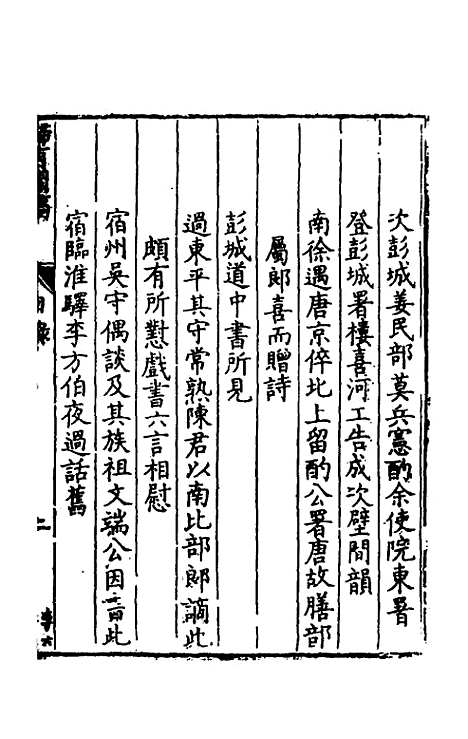 次彭城姜民部莫兵憲酌余使院東署
登彭城署樓喜河工告成次壁間韻
南徐遇唐京倅北上留酌公署唐故膳部
屬郎喜而贈詩
彭城道中書所見
過東平其守常熟陳君以南比部郎謫此
頗有所懟戲書六言相慰
宿州吳守偶談及其族祖文端公因言此
宿臨淮驛李方伯夜過話舊
目錄